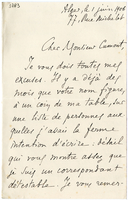 Alger, le 1 juin 1908
77, Rue Michelet
Cher Monsieur Cumont,
Je vous dois toutes mes
excuses. Il y a déjà des
mois que votre nom figure,
à un coin de ma table, sur
une liste de personnes aux
quelles j'avais la ferme
intention d'écrire : détail
qui vous montre assez que
je suis un correspondant
détestable. Je vous remer-